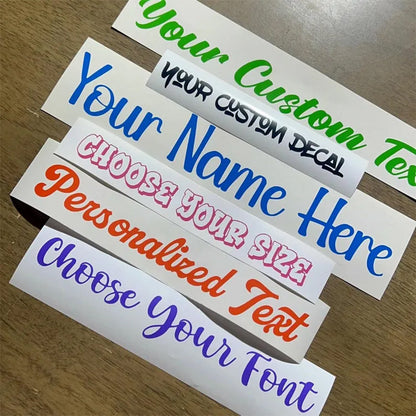 Your Custom Tex
YOUR CUSTOM DECAL
Your Name Here
CHOOSE YOUR SIZE
Personalized Text
Choose Your Font